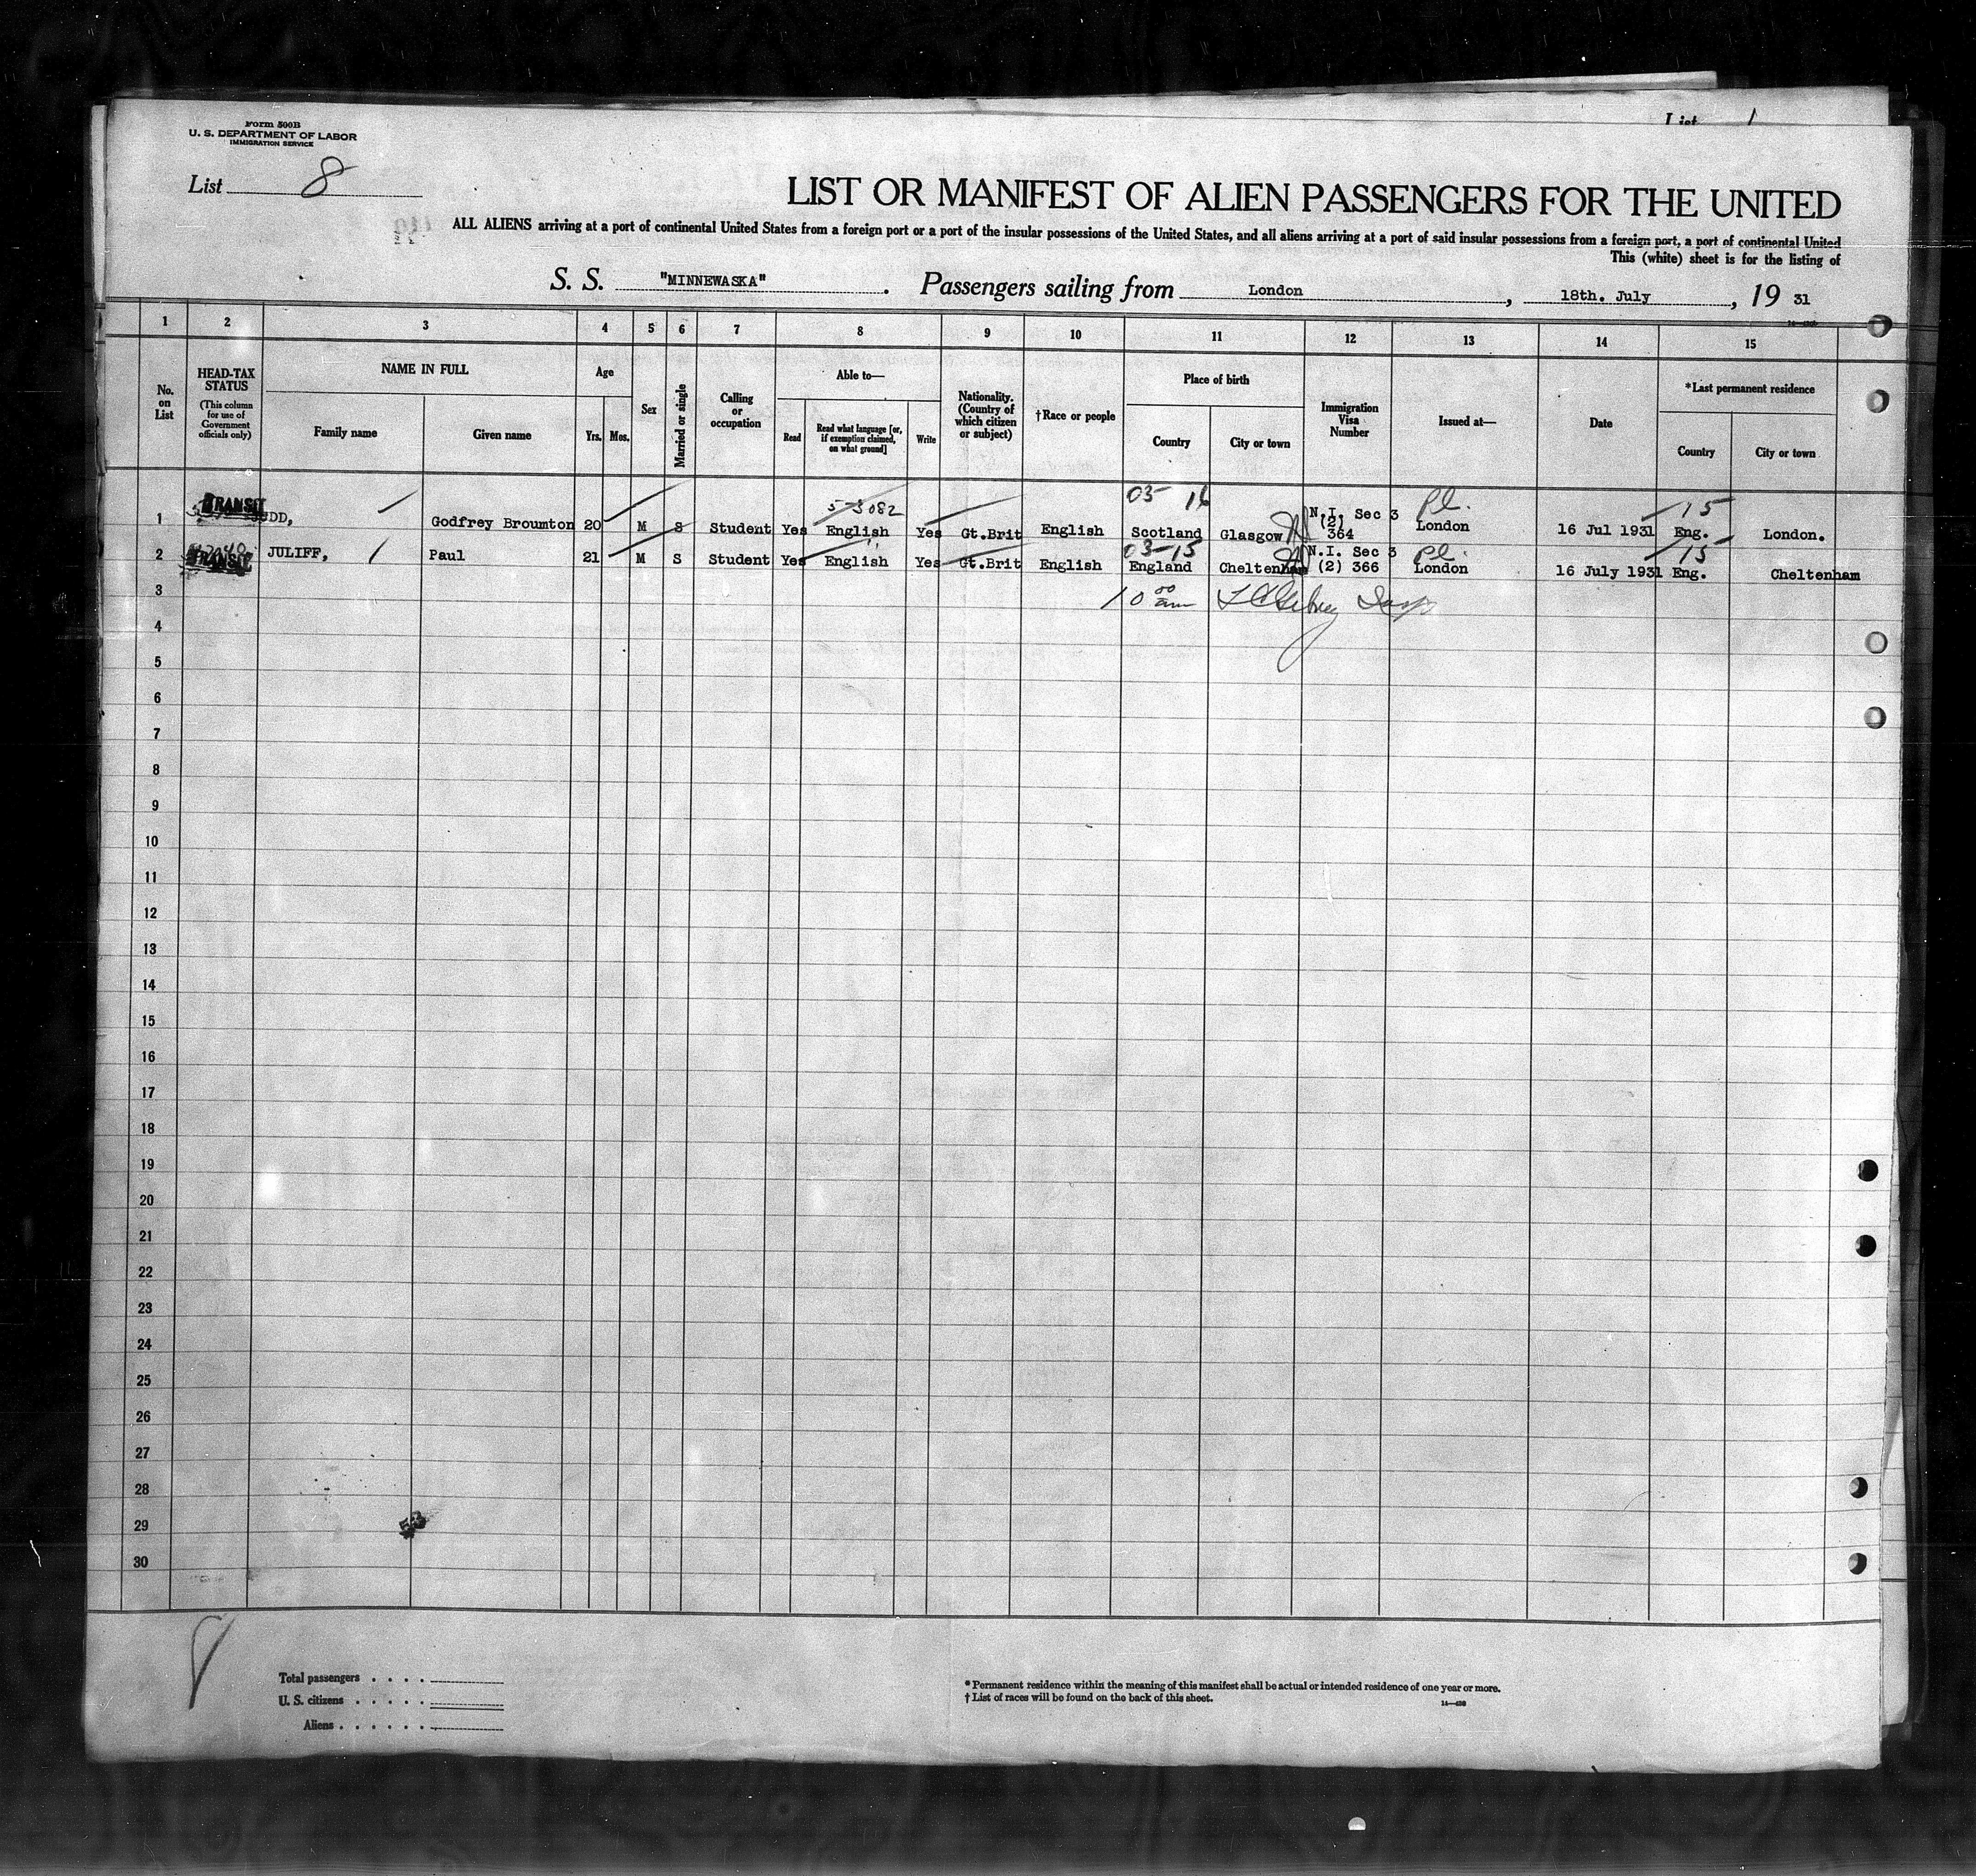 Form 500B
U. S. DEPARTMENT OF LABOR
IMMIGRATION SERVICE
List 1
List 8
LIST OR MANIFEST OF ALIEN PASSENGERS FOR THE UNITED
ALL ALIENS arriving at a port of continental United States from a foreign port or a port of the insular possessions of the United States, and all aliens arriving at a port of said insular possessions from a foreign port, a port of continental United
This (white) sheet is for the listing of
S. S. "MINNEWASKA". Passengers sailing from London, 18th. July, 19 31
1 2 3 4 5 6 7 8 9 10 11 12 13 14 15
No. on List
HEAD-TAX STATUS (This column for use of Government officials only)
NAME IN FULL
Family name
Given name
Age
Yrs. Mos.
Sex
Married or single
Calling or occupation
Able to—
Read
Read what language [or, if exemption claimed, on what ground]
Write
Nationality. (Country of which citizen or subject)
†Race or people
Place of birth
Country
City or town
Immigration Visa Number
Issued at—
Date
*Last permanent residence
Country
City or town
TRANSIT 03 16 15
1 JUDD, Godfrey Broumton 20 M S Student Yes English Yes Gt.Brit English Scotland Glasgow N.I. Sec 3 (2) 364 London 16 Jul 1931 Eng. London.
TRANSIT 03-15 15
2 JULIFF, Paul 21 M S Student Yes English Yes Gt.Brit English England Cheltenham N.I. Sec 3 (2) 366 London 16 July 1931 Eng. Cheltenham
3 10 00 am
4
5
6
7
8
9
10
11
12
13
14
15
16
17
18
19
20
21
22
23
24
25
26
27
28
29
30
53
Total passengers . . . .
U. S. citizens . . . . .
Aliens . . . . . .
* Permanent residence within the meaning of this manifest shall be actual or intended residence of one year or more.
† List of races will be found on the back of this sheet.